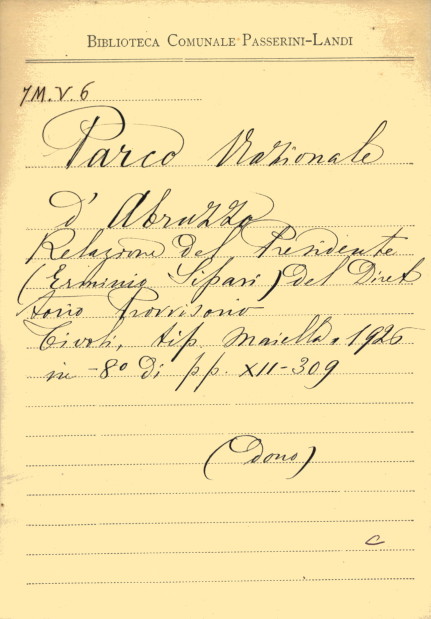 BIBLIOTECA COMUNALE PASSERINI-LANDI
7M.V.6
Parco Nazionale
d'Abruzzo
Relazione del Presidente
(Erminio Sipari) del Diret
torio Provvisorio
Tivoli, tip Maiella, 1926
in-8º di pp. XII-309
(dono)
C